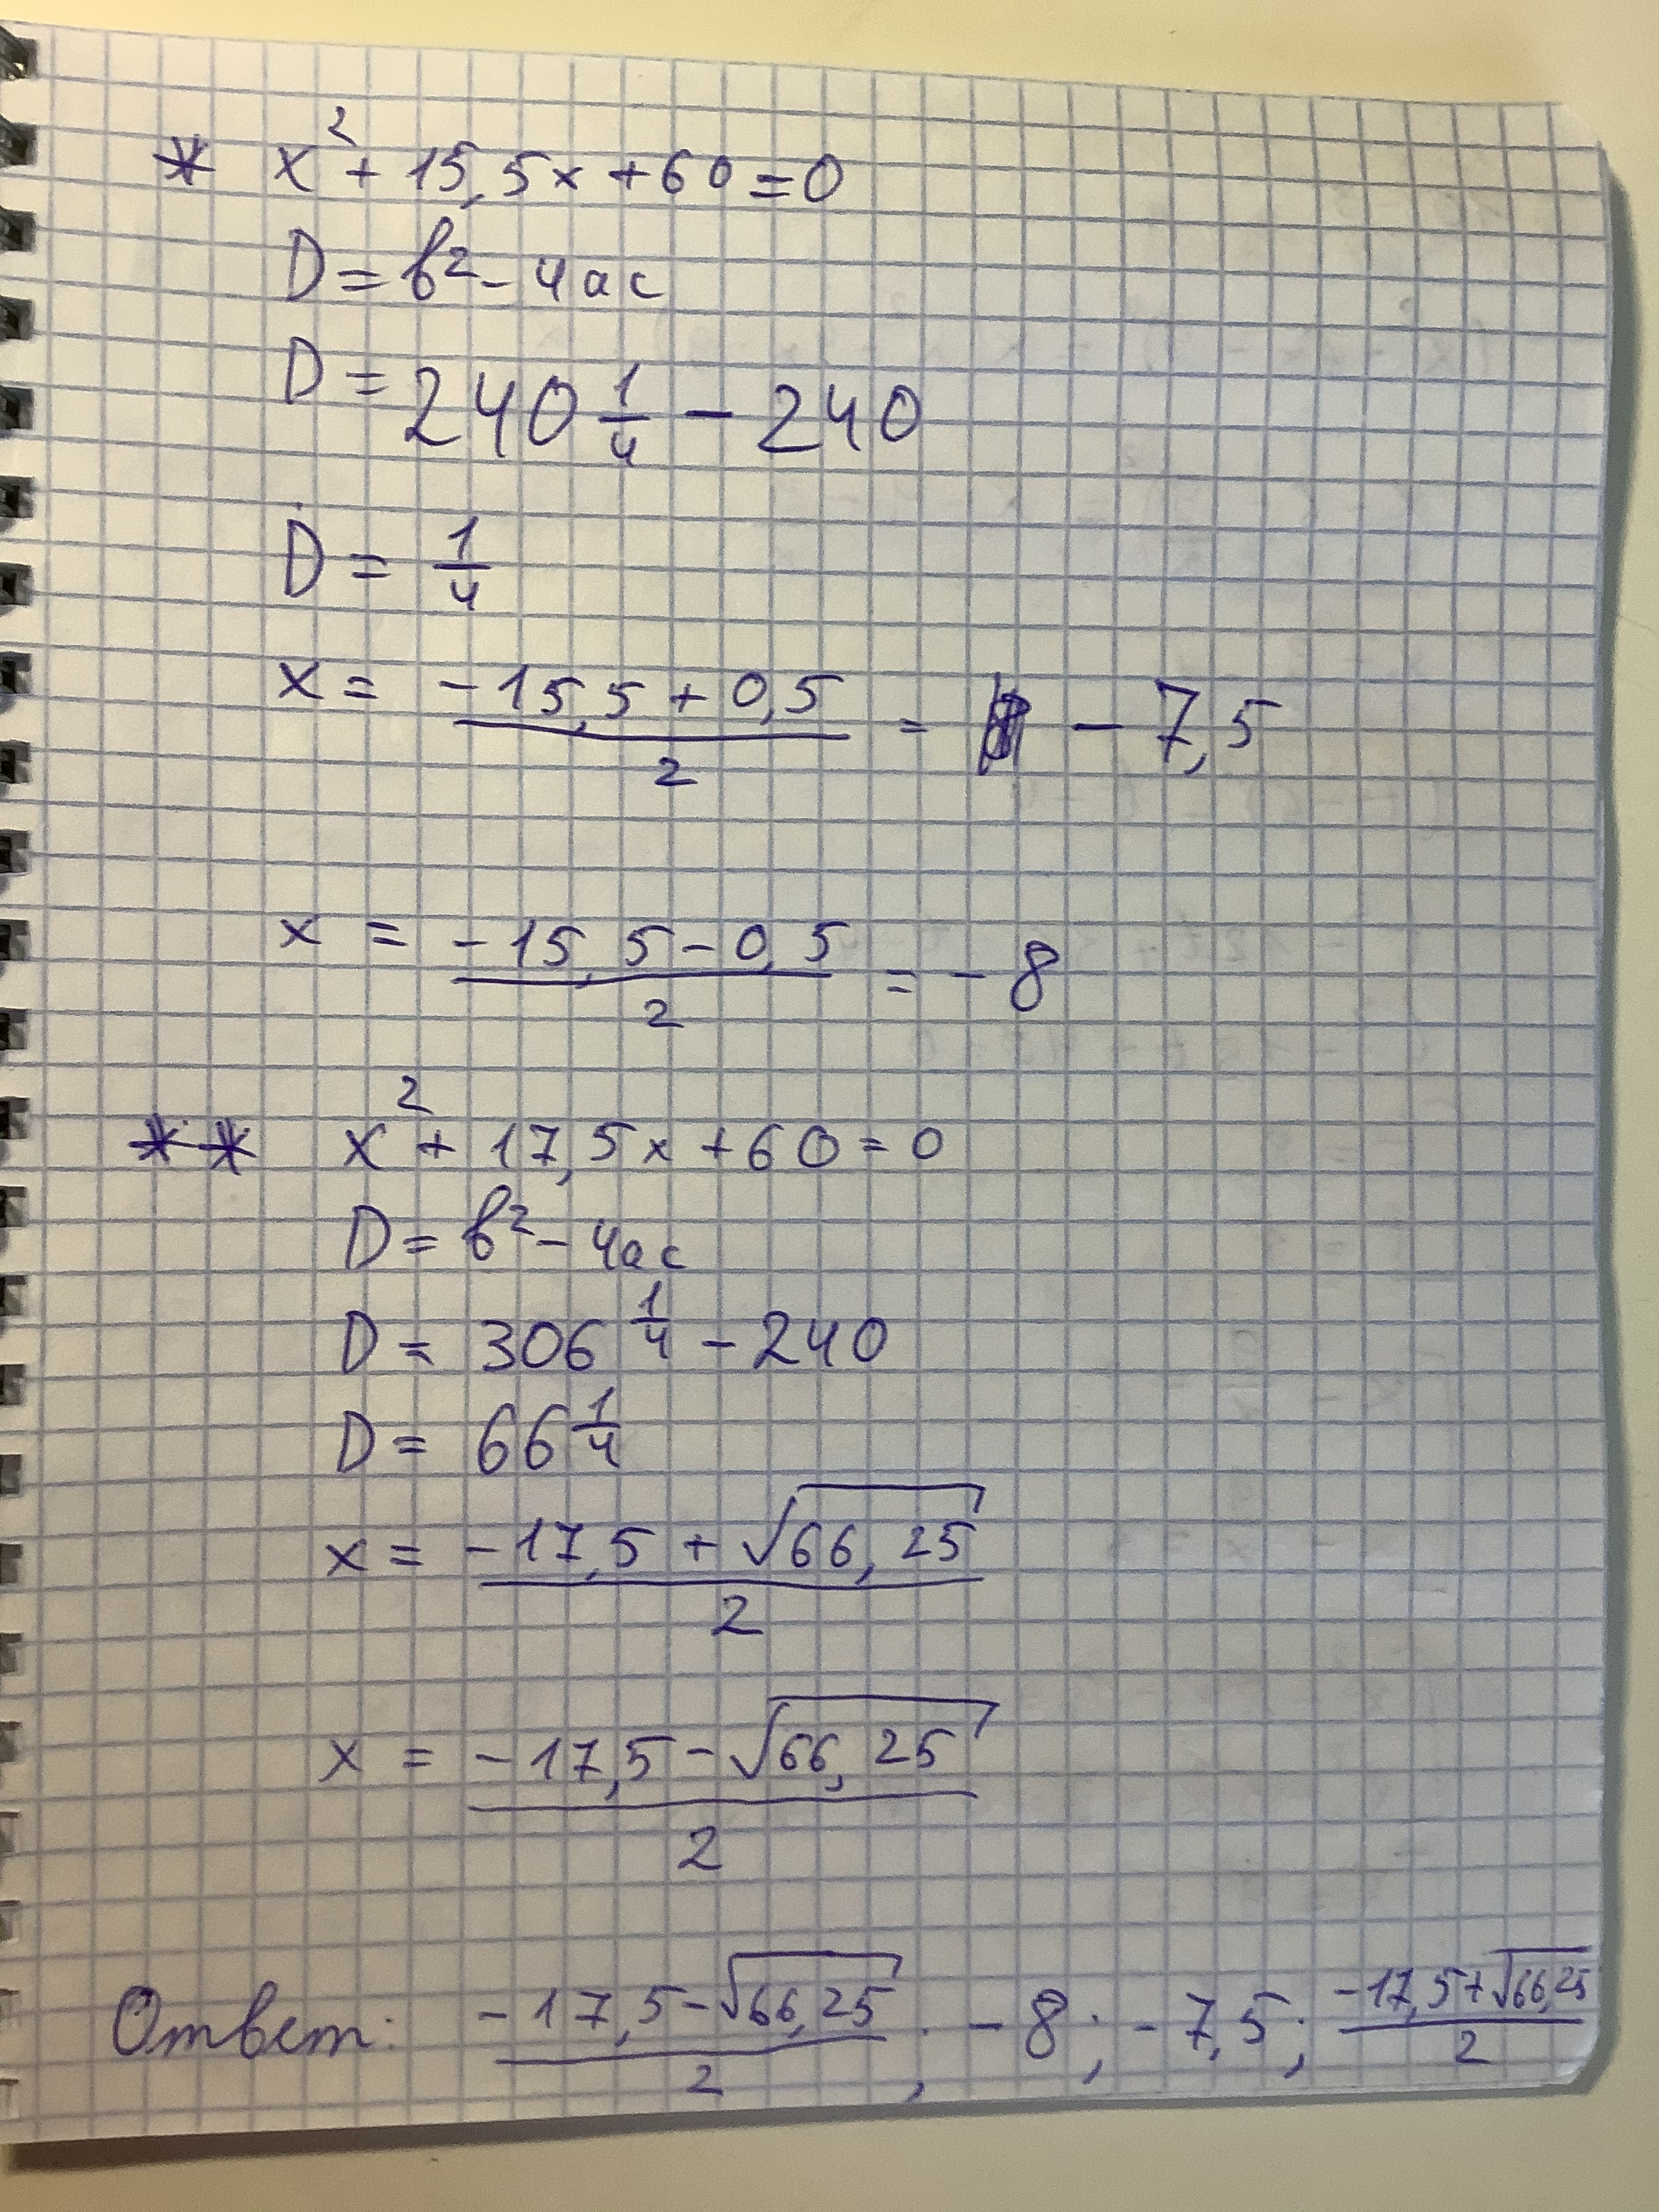 * x² + 15,5x + 60 = 0
D = b² - 4ac
D = 240 1/4 - 240
D = 1/4
x = (-15,5 + 0,5)/2 = - 7,5
x = (-15,5 - 0,5)/2 = - 8
** x² + 17,5x + 60 = 0
D = b² - 4ac
D = 306 1/4 - 240
D = 66 1/4
x = (-17,5 + √66,25)/2
x = (-17,5 - √66,25)/2
Ответ: (-17,5 - √66,25)/2 ; - 8 ; - 7,5 ; (-17,5 + √66,25)/2